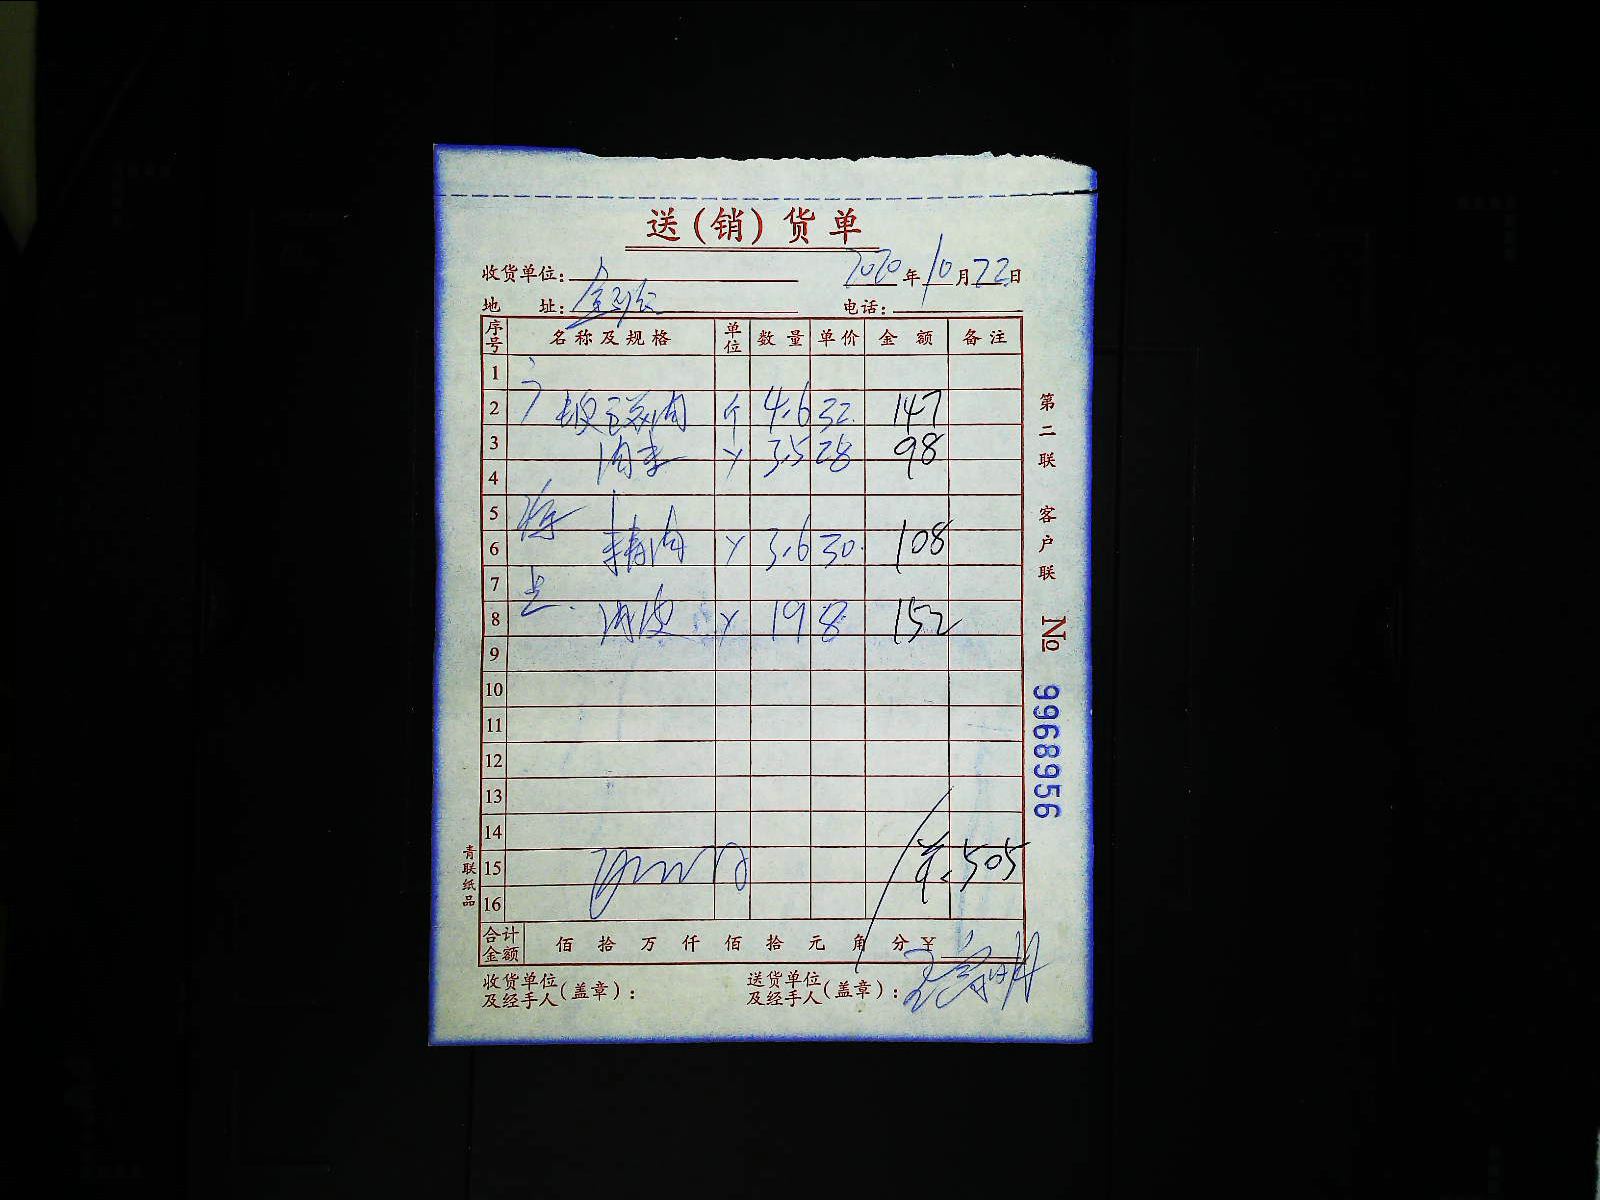 送(销)货单
收货单位: 2020年10月22日
地 址: 电话:
序号 名称及规格 单位 数量 单价 金额 备注
1
2 肉 个 4.6 32. 147
3 3.5 28 98
4
5
6 精肉 3.6 30. 108
7
8 19 8 152
9
10
11
12
13
14
15 505
16
合计金额 佰 拾 万 仟 佰 拾 元 角 分 ¥
收货单位及经手人(盖章): 送货单位及经手人(盖章):
第二联 客户联
No 9968956
青联纸品